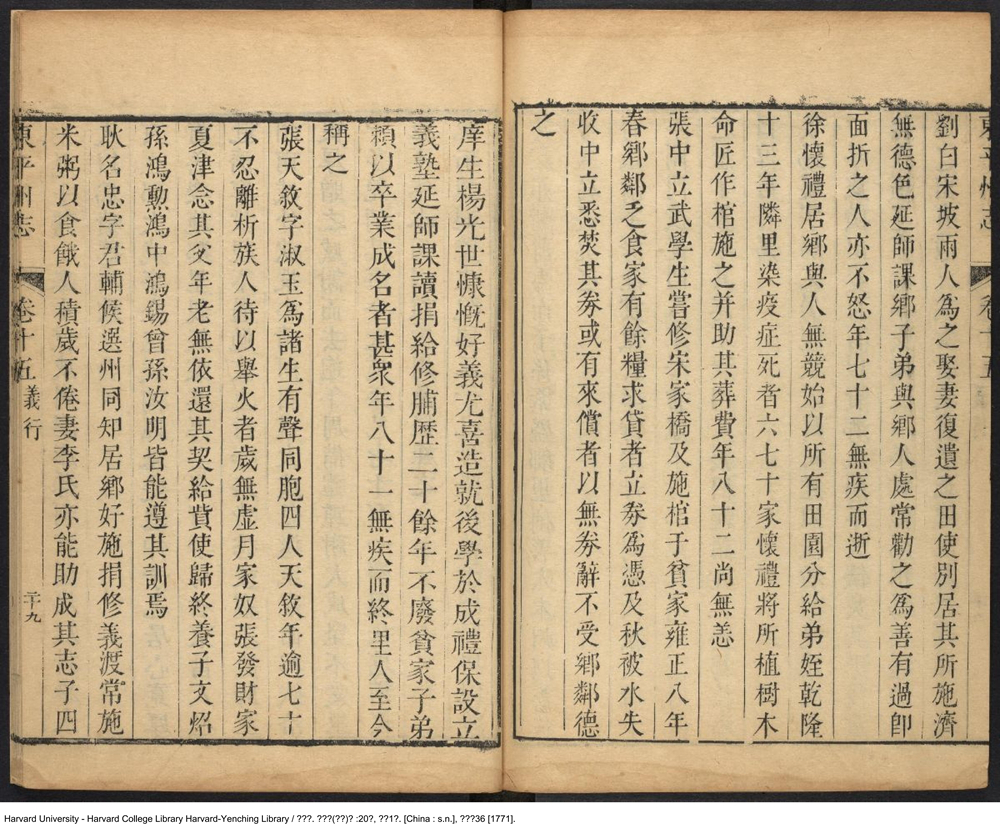 東平州志
卷十五
劉白宋坡兩人爲之娶妻復遺之田使別居其所施濟
無德色延師課鄉子弟與鄉人處常勸之爲善有過卽
面折之人亦不怒年七十二無疾而逝
徐懷禮居鄉與人無競始以所有田園分給弟姪乾隆
十三年隣里染疫症死者六七十家懷禮將所植樹木
命匠作棺施之并助其葬費年八十二尚無恙
張中立武學生嘗修宋家橋及施棺于貧家雍正八年
春鄉鄰乏食家有餘糧求貸者立券爲憑及秋被水失
收中立悉焚其券或有來償者以無券辭不受鄉鄰德
之
庠生楊光世慷慨好義尤喜造就後學於成禮保設立
義塾延師課讀捐給修脯歷二十餘年不廢貧家子弟
賴以卒業成名者甚衆年八十一無疾而終里人至今
稱之
張天敘字淑玉爲諸生有聲同胞四人天敘年逾七十
不忍離析族人待以舉火者歲無虛月家奴張發財家
夏津念其父年老無依還其契給貲使歸終養子文炤
孫鴻勲鴻中鴻錫曾孫汝明皆能遵其訓焉
耿名忠字君輔候選州同知居鄉好施捐修義渡常施
米粥以食餓人積歲不倦妻李氏亦能助成其志子四
東平州志
卷十五
義行
二十九
Harvard University - Harvard College Library Harvard-Yenching Library / ???. ???(??)? :20?, ??1?. [China : s.n.], ???36 [1771].